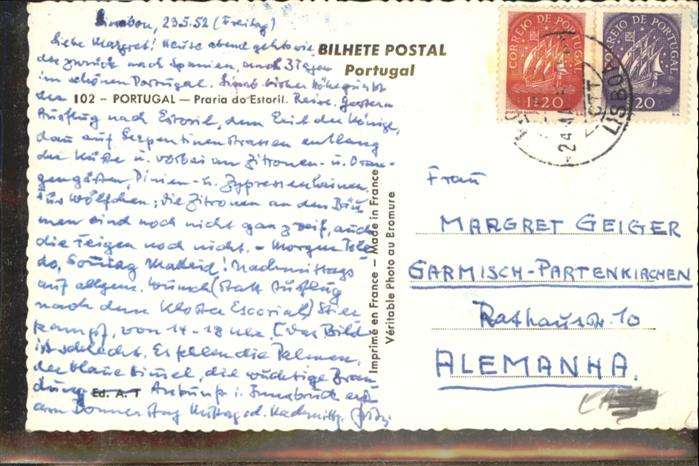 Lissabon, 23.5.52 (Freitag)
Liebe Margret! Heute abend geht's wie-
der zurück nach Spanien, nach 3 Tagen
im schönen Portugal. bisher Höhepunkt
der Reise. Gestern
Ausflug nach Estoril, dem Exil der Könige,
dann auf Serpentinenstrassen entlang
der Küste u. vorbei an Zitronen- u. Oran-
gengärten, Pinien- u. Zypressenhainen.
Für Wölfchen: die Zitronen an den Bäu-
men sind noch nicht ganz reif, auch
die Feigen noch nicht. - Morgen Tole-
do, Sonntag Madrid! Nachmittags
auf allgem. Wunsch (statt Ausflug
nach dem Kloster Escorial) Stier-
kampf, von 17-19 Uhr. [Das Bild
ist schlecht. Es fehlen die Palmen,
der blaue Himmel, die wuchtige Bran-
dung Ankunft i. Innsbruck
am Donnerstag Mittag od. Nachmittg.
BILHETE POSTAL
Portugal
102 - PORTUGAL — Praria do Estoril.
Ed. A. T
Imprimé en France - Made in France
Véritable Photo au Bromure
CORREIO DE PORTUGAL
1$20
CORREIO DE PORTUGAL
20
LISBOA
CTT
24
Frau
MARGRET GEIGER
GARMISCH-PARTENKIRCHEN
Rathausstr. 10
ALEMANHA.